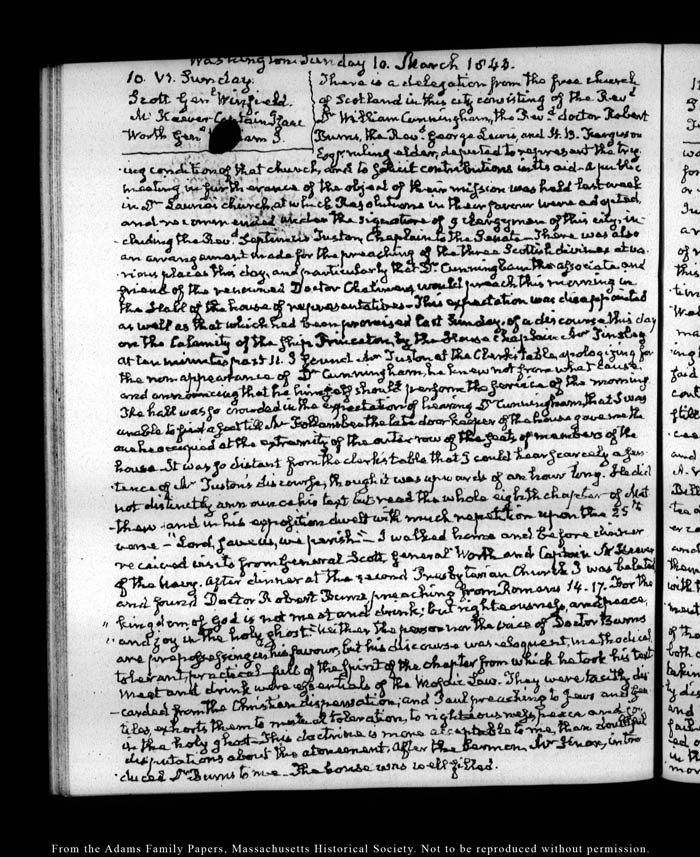 Washington Sunday 10. March 1844.
10. VI. Sunday.
Scott Genl Winfield.
McKeever Captain Isaac
Worth Genl W am J.
There is a delegation from the free church
of Scotland in this city consisting of the Revd
Dr William Cunningham, the Revd doctor Robert
Burns, the Revd George Lewis, and H. B. Ferguson
Esqr ruling elder, deputed to represent the try-
ing condition of that church, and to solicit contributions in its aid. A public
meeting in furtherance of the object of their mission was held last week
in Dr Laurie's church, at which Resolutions in their favour were adopted,
and recommended under the signature of 9 clergymen of this city in-
cluding the Revd Septimus Tuston, Chaplain to the Senate. There was also
an arrangement made for the preaching of the three Scottish divines at va-
rious places this day, and particularly that Dr Cunningham the associate and
friend of the renowned Doctor Chalmers, would preach this morning in
the Hall of the house of representatives. This expectation was disappointed
as well as that which had been promised last Sunday, of a discourse this day
on the Calamity of the ship Princeton, by the House Chaplain Mr Tinsley
at ten minutes past 11. I found Mr Tuston at the Clerk's table, apologizing for
the non appearance of Dr Cunningham, he knew not from what cause,
and announcing that he himself should perform the service of the morning.
The hall was so crowded in the expectation of hearing Dr Cunningham, that I was
unable to find a seat till Mr Follansbee the late door keeper of the house gave me the
one he occupied at the extremity of the outer row of the seats of members of the
house. It was so distant from the clerk's table that I could hear scarcely a sen-
tence of Mr Tuston's discourse, though it was upwards of an hour long. He did
not distinctly announce his text but read the whole eighth chapter of Mat-
thew and in his exposition dwelt with much repetition upon the 25th
verse "Lord, save us, we perish" I walked home and before dinner
received visits from General Scott, General Worth and Captain McKeever
of the Navy. After dinner at the second Presbyterian Church I was belated
and found Doctor Robert Burns preaching from Romans 14. 17. For the
" kingdom of God is not meat and drink; but righteousness, and peace,
" and joy in the holy ghost" Neither the person nor the voice of Doctor Burns
are prepossessing in his favour, but his discourse was eloquent, methodical
tolerant, practical full of the spirit of the chapter from which he took his text
Meat and drink were essentials of the Mosaic Law. They were tacitly dis-
carded from the Christian dispensation; and Paul preaching to Jews and Gen-
tiles, exhorts them to mutual toleration, to righteousness, peace and joy
in the holy ghost. This doctrine is more acceptable to me, than doubtful
disputations about the atonement. After the Sermon, Mr Knox, intro-
duced Dr Burns to me. The house was well filled.
From the Adams Family Papers, Massachusetts Historical Society. Not to be reproduced without permission.